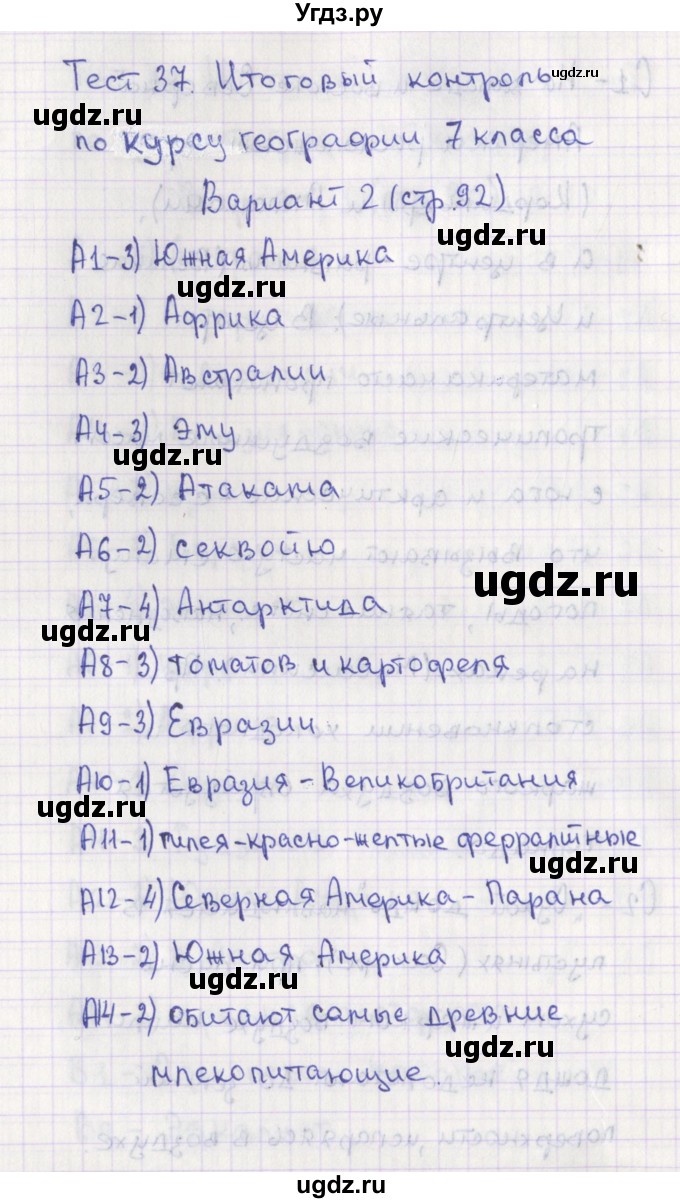 Угдз.ру
Тест 37. Итоговый контроль
по курсу географии 7 класса
Вариант 2 (стр. 92)
А1-3) Южная Америка
А2-1) Африка
А3-2) Австралии
А4-3) Эму
А5-2) Атакама
А6-2) секвойю
А7-4) Антарктида
А8-3) томатов и картофеля
А9-3) Евразии
А10-1) Евразия - Великобритания
А11-1) гилея-красно-желтые ферралитные
А12-4) Северная Америка - Парана
А13-2) Южная Америка
А14-2) обитают самые древние
млекопитающие.
ugdz.ru
ugdz.ru
ugdz.ru
ugdz.ru
ugdz.ru
ugdz.ru
ugdz.ru
ugdz.ru
ugdz.ru
ugdz.ru
ugdz.ru
ugdz.ru
ugdz.ru